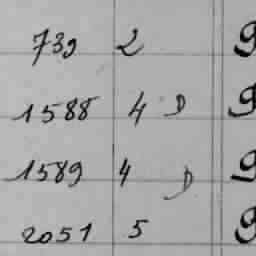 739 2 9
1588 4 D 9
1589 4 D 9
2051 5 9